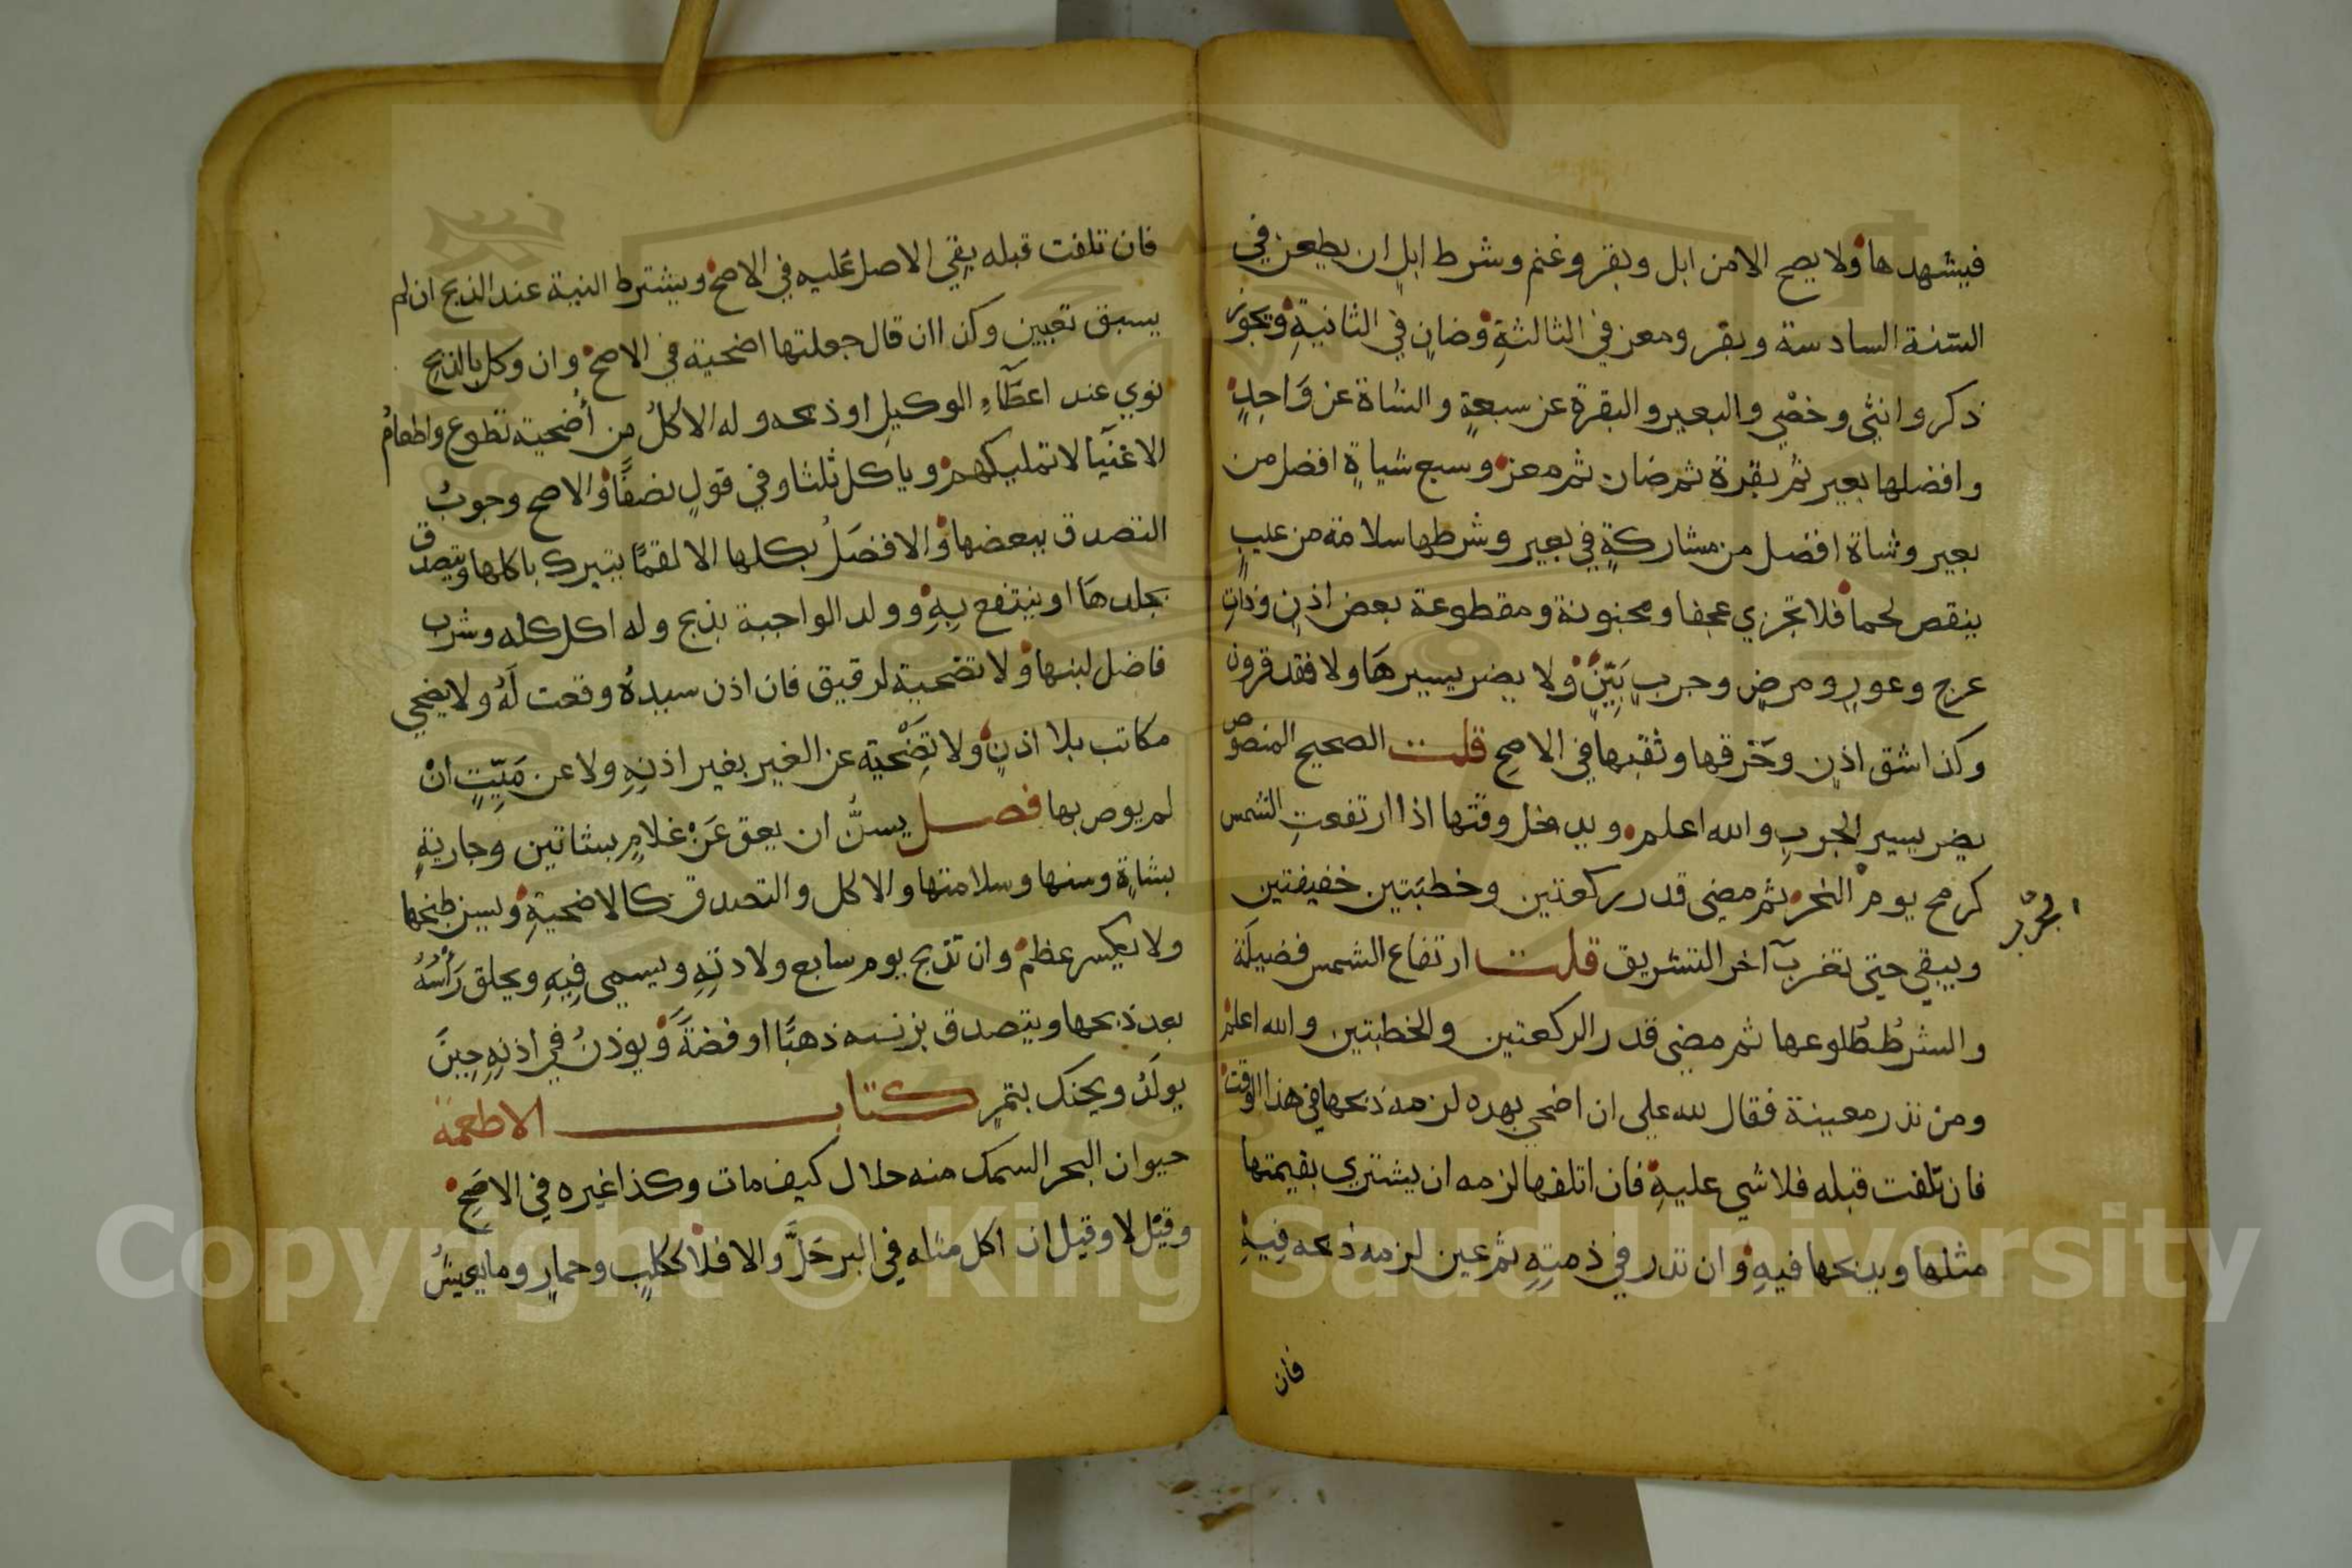 فيشهدها ولا يصح الا من ابل وبقر وغنم وشرط ابل ان يطعن في
السّنة السادسة وبقر ومعز في الثالثةِ وضانٍ في الثانيةِ ويجوز
ذكر وانثى وخصْي والبعير والبقرة عن سبعةٍ والشاة عن وَاحِدٍ
وافضلها بعير ثم بقرة ثم ضان ثم معز وسبع شياةٍ افضل من
بعير وشاة افضل من مشاركةٍ في بعير وشرطها سلامة من عيبٍ
ينقص لحما فلا تجزي عجفا ومجنونة ومقطوعة بعض اذن وذاتِ
عرج وعورٍ ومرضٍ وجربٍ بَيّنٍ ولا يضر يسيرهَا ولا فقد قرون
وكذا شق اذنٍ وخَرْقها وثقبها في الاصح قلت الصحيح المنصوص
يضر يسير الجربِ والله اعلم ويدخل وقتها اذا ارتفعتِ الشمس
كرمح يوم النحر ثم مضي قدر ركعتين وخطبَتين خفيفتين
ويبقي حتى تغرب آخر التشريق قلت ارتفاع الشمس فضيلَة
والشرطُ طُلوعها ثم مضي قدر الركعتين والخطبتين والله اعلم
ومن نذر معينة فقال لله علي ان اضحي بهده لزمه ذبحها في هذا الوقت
فان تلفت قبله فلا شي عليهِ فان اتلفها لزمه ان يشتري بقيمتها
مثلها ويدبحها فيهِ وان نذر في ذمتِهِ ثم عين لزمه ذبحه فِيهِ
فان
فان تلفت قبله بقي الاصل عَليه في الاصح ويشترط النية عند الذبح ان لم
يسبق تعيين وكذا ان قال جعلتها اضحية في الاصح وان وكل بالذبح
نوي عند اعطَآءِ الوكيلِ او ذبحه وله الاكلُ من أضحية تطوع واطعامُ
الاغنيَا لا تمليكهم وياكل ثلثا وفي قولٍ نصفًا والاصح وجوبُ
التصدق ببعضها والافضَلُ بكلها الا لقمًا يتبرك باكلها ويتصدق
بجلدهَا او ينتفع بِهِ وولد الواجبة يذبح وله اكل كله وشرب
فاضل لبنها ولا تضحية لرقيق فان اذن سيدهُ وقعت لَهُ ولا يضحي
مكاتب بلا اذنٍ ولا تضحية عن الغير بغير اذنِهِ ولا عن مَيِّتٍ انْ
لم يوص بها فصل يسنُّ ان يعق عَنْ غلامٍ بشاتين وجاريةٍ
بشاةٍ وسنها وسلامتها والاكل والتصدق كالاضحيةِ ويسن طبخها
ولا يكسر عظم وان تذبح يوم سابع ولادتِهِ ويسمي فِيهِ ويحلق رَأسَهُ
بعد ذبحها ويتصدق بزنته ذهبًا او فضةً وَيوذنُ في اذنِهِ حِينَ
يولَدُ ويحنك بتمرٍ كتاب الاطعمة
حيوان البحر السمك منه حلال كيف مات وكذا غيره في الاصَحِ
وقيْل لا وقيل ان اكل مثله في البر حَلَّ والا فلا ككلبٍ وحمارٍ وما يعيشُ
Copyright © King Saud University